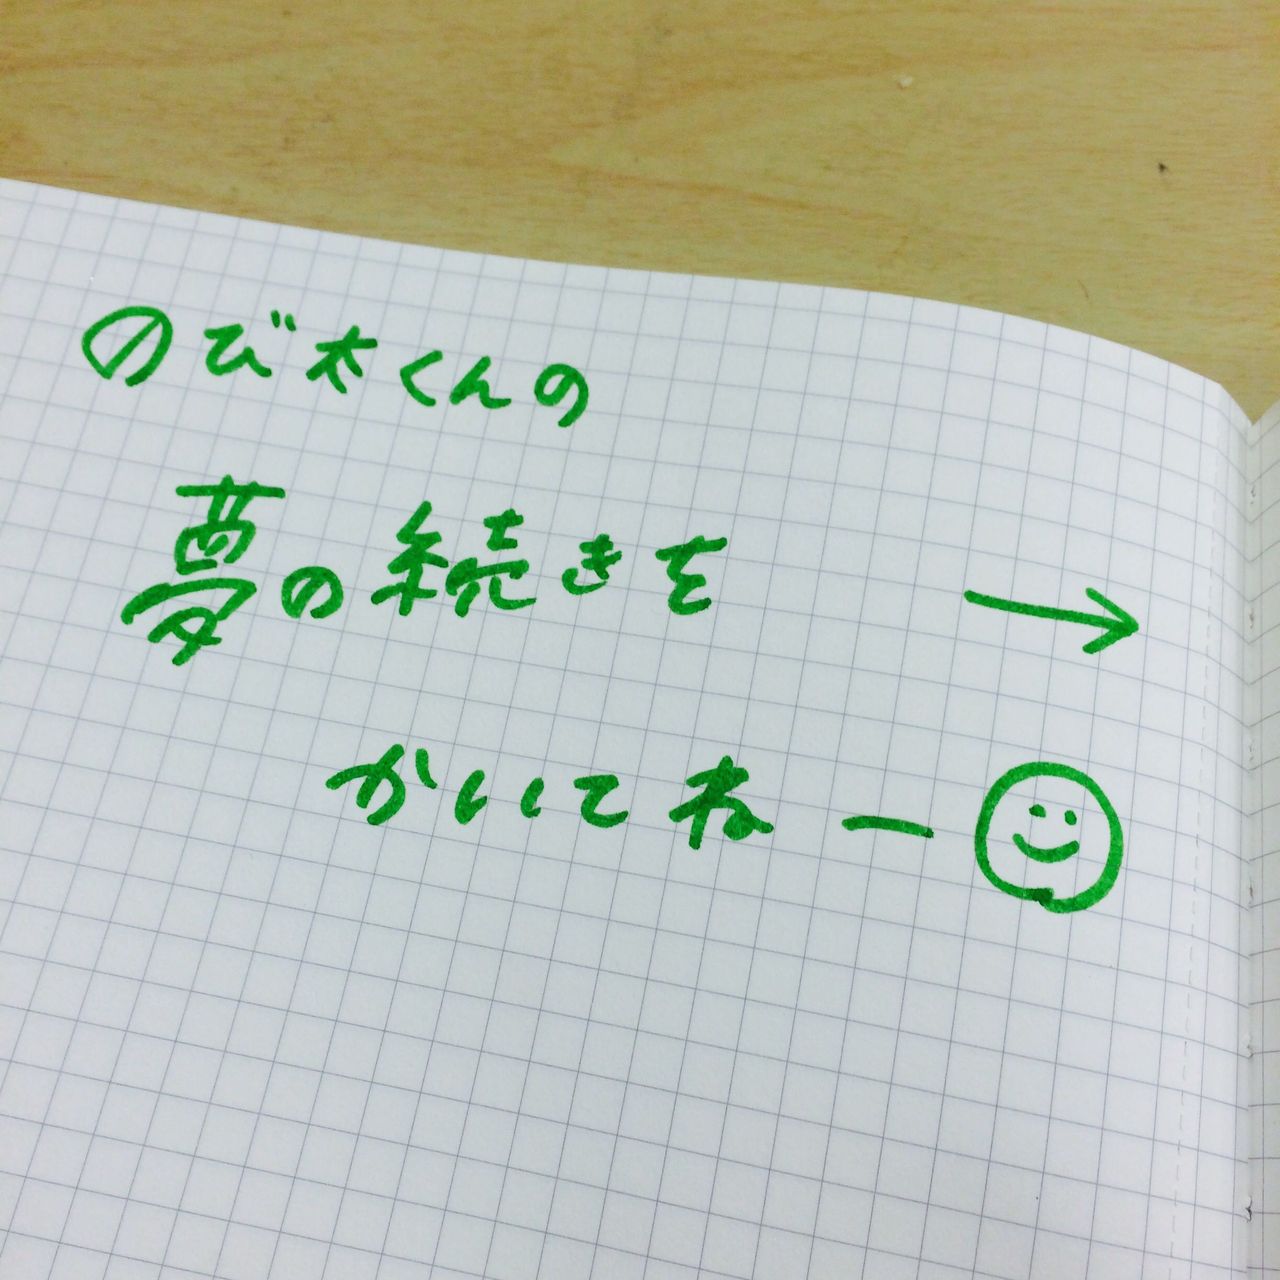 のび太くんの
夢の続きを →
かいてねー